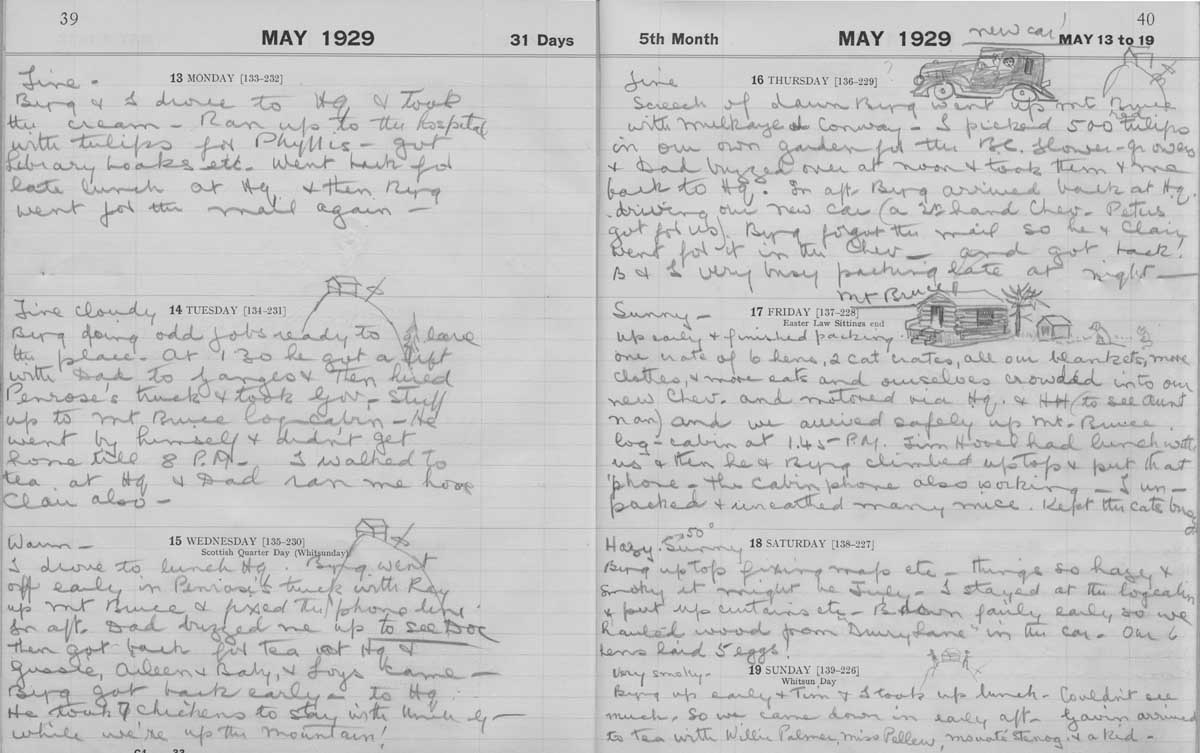 39
MAY 1929
31 Days
Fine -
13 MONDAY [133-232]
Byrg & I drove to Hq & took
the cream - Ran up to the hospital
with tulips for Phyllis - got
library books etc. Went back for
late lunch at Hq & then Byrg
went for the mail again -
Fine cloudy
14 TUESDAY [134-231]
Byrg doing odd jobs ready to leave
the place. At 1.30 he got a lift
with Dad to Ganges & then hired
Penrose's truck & took Gov. stuff
up to Mt Bruce log-cabin - He
went by himself & didn't get
home till 8 P.M. - I walked to
tea at Hq & Dad ran me home
Clair also -
Warm -
15 WEDNESDAY [135-230]
Scottish Quarter Day (Whitsunday)
I drove to lunch Hq. Byrg went
off early in Penrose's truck with Ray
up Mt Bruce & fixed the 'phone line.
In aft. Dad buzzed me up to see Doc
then got back for tea at Hq &
Gussie, Aileen & Baby, & Joys came -
Byrg got back early - to Hq.
He took 7 chickens to stay with
while we're up the mountain!
5th Month
MAY 1929
new car!
MAY 13 to 19
40
Fine
16 THURSDAY [136-229]
Screech of dawn Byrg went up Mt Bruce
with and Conway - I picked 500 red tulips
in our own garden for the B.C. flower-growers
& Dad buzzed over at noon & took them & me
back to Hq. In aft. Byrg arrived back at Hq.
driving our new car (a 2nd hand Chev- Petus
got for us). Byrg forgot the mail so he & Clair
went for it in the Chev - and got back!
B & I very busy packing late at night -
Mt Bruce
Sunny -
17 FRIDAY [137-228]
Easter Law Sittings end
up early & finished packing.
one crate of 6 hens, 2 cat crates, all our blankets, more
clothes, & more eats and ourselves crowded into our
new Chev. and motored via Hq. & HH (to see Aunt
Nan) and we arrived safely up Mt. Bruce
log-cabin at 1.45 P.M. Jim Hovel had lunch with
us & then he & Byrg climbed up top & put that
'phone - the cabin phone also working - I un-
packed & unearthed many mice. Kept the cats busy
Hazy. Sunny 50°
18 SATURDAY [138-227]
Byrg up top fixing map etc - things so hazy &
smoky it might be July. I stayed at the logcabin
& put up curtains etc - B down fairly early so we
hauled wood from "Drury Lane" in the car - Our 6
hens laid 5 eggs!
very smoky -
19 SUNDAY [139-226]
Whitsun Day
Byrg up early & Tim & I took up lunch - Couldn't see
much. So we came down in early aft - Gavin arrived
to tea with Willie Palmer, Miss Pellew, & a kid -